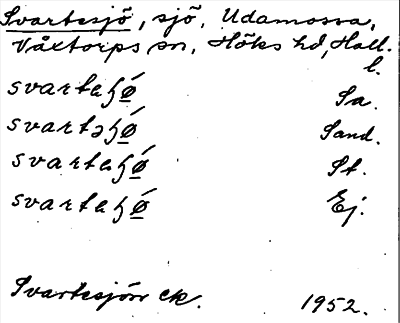 Svartesjö, sjö, Udamossa,
Våxtorps sn, Höks hd, Hall.
l.
svartaɧǿ Sa.
svartəɧǿ Sand.
svartaɧǿ St.
svartaɧǿ Ej.
Svartesjön ek. 1952.